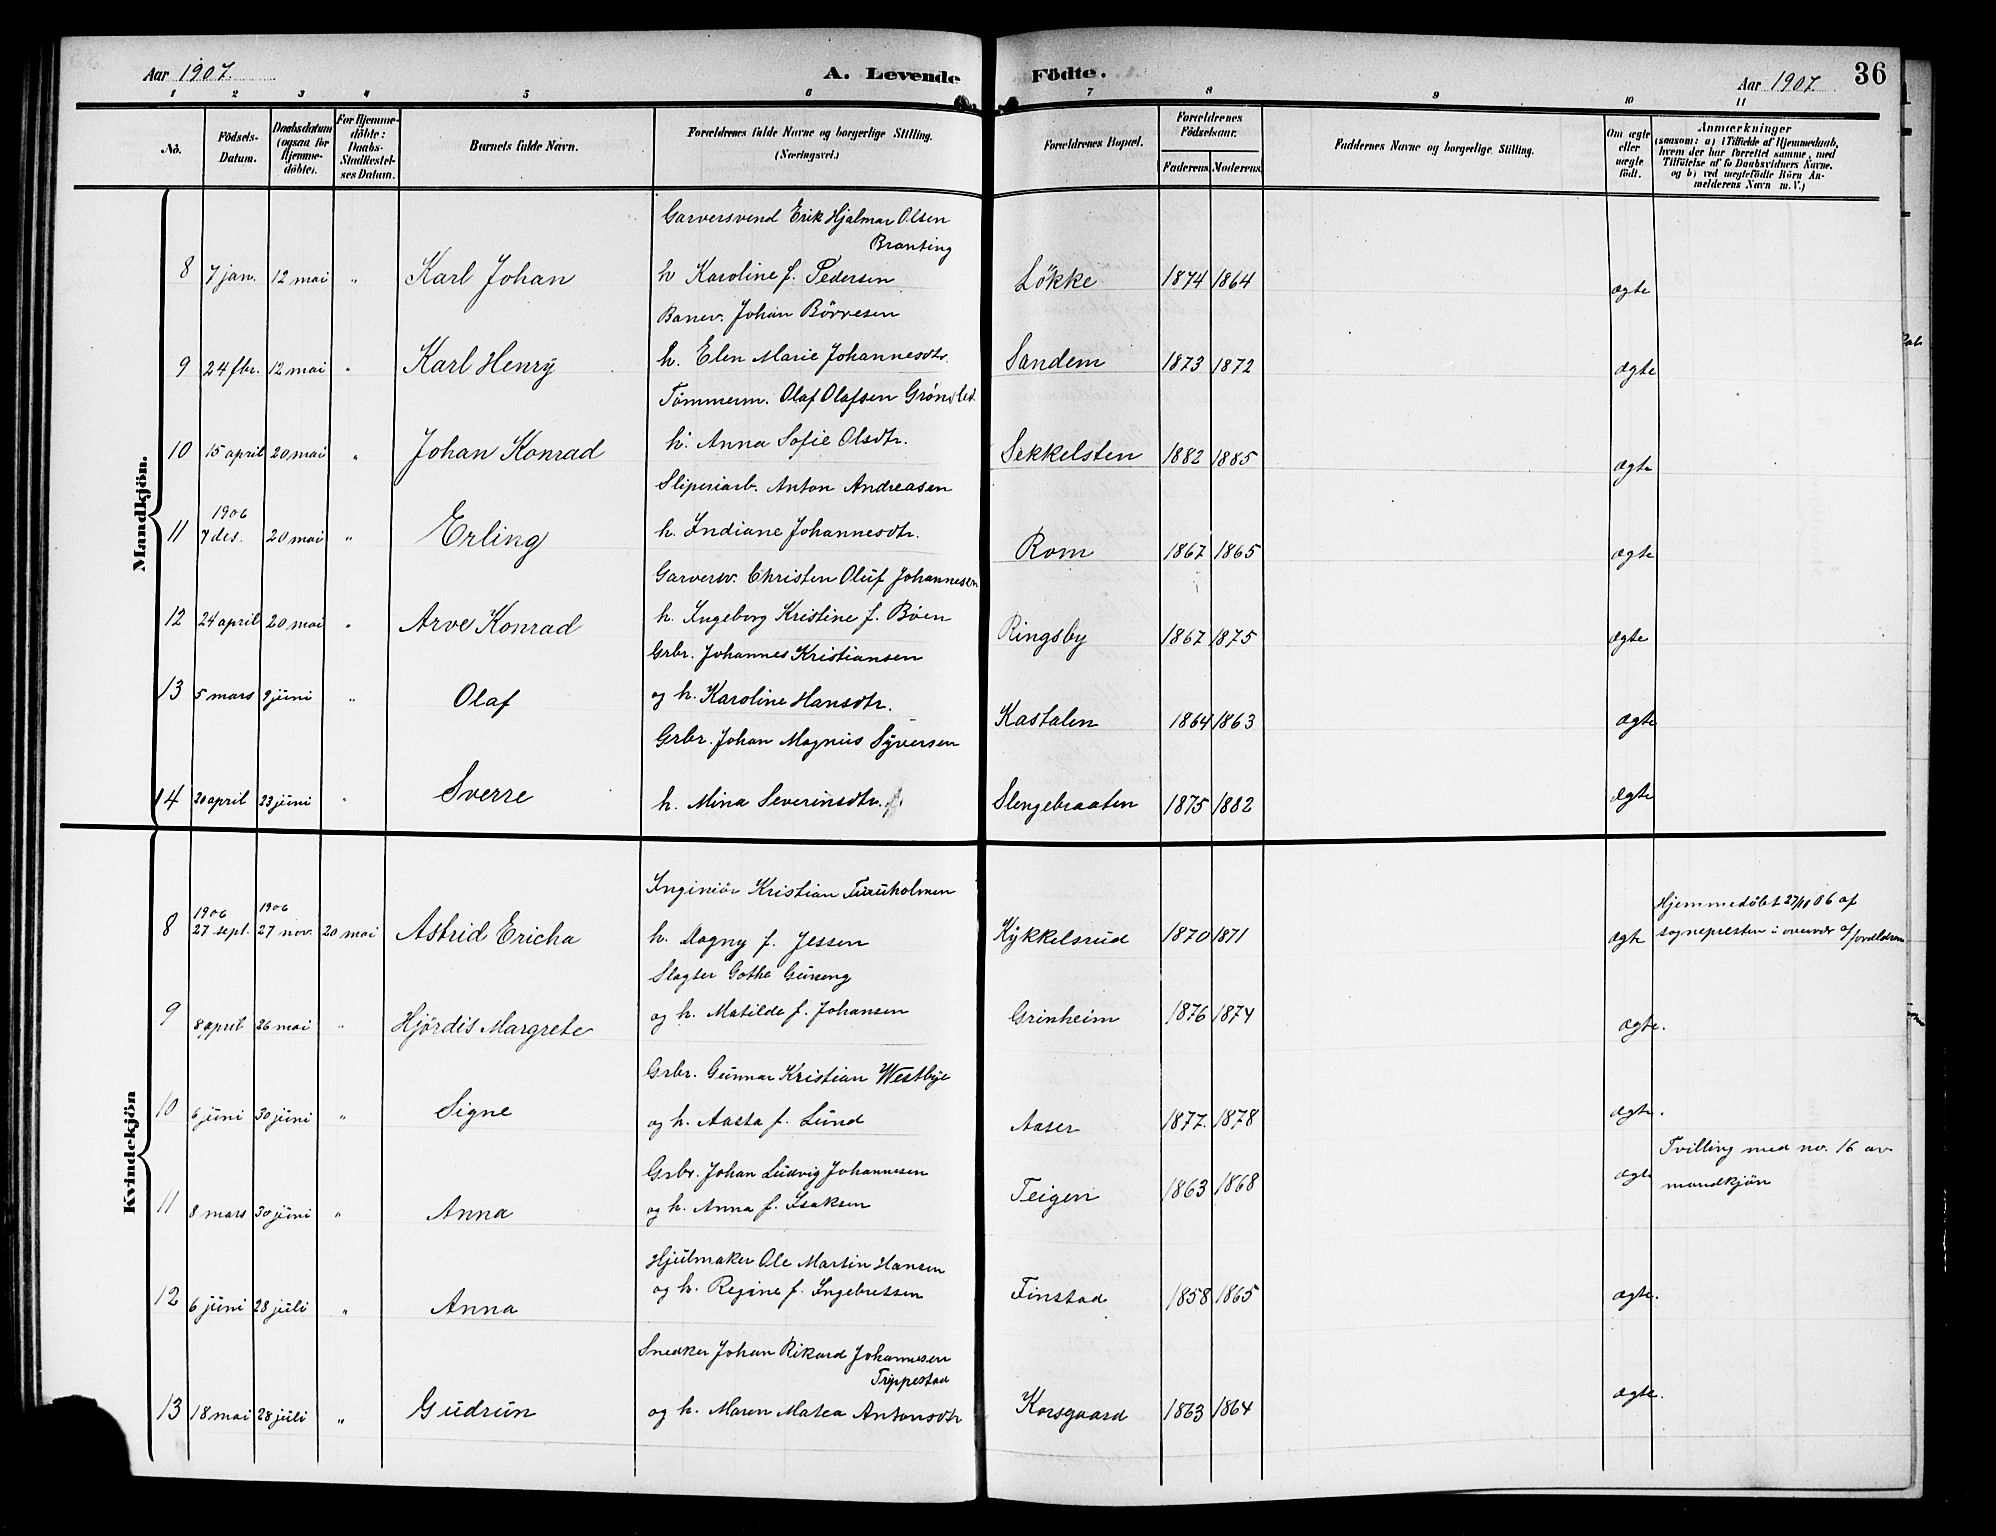 Aar 1907. A. Levende Födte. Aar 1907. 36
1 2 3 4 5 6 7 8 9 10 11
No. Födsels-Datum. Daabsdatum (ogsaa for Hjemme-döbte). For Hjemme-döbte: Daabs-Stadfæstel-ses Datum. Barnets fulde Navn. Forældrenes fulde Navne og borgerlige Stilling. (Næringsvei.) Forældrenes Bopæl. Forældrenes Födselsaar. Faderens. Moderens. Faddernes Navne og borgerlige Stilling. Om ægte eller uægte födt. Anmærkninger (saasom: a) i Tilfælde af Hjemmedaab, hvem der har forrettet samme, med Tilföielse af to Daabsvidners Navne, og b) ved uægtefödte Börn An-melderens Navn m. V.)
Mandkjön.
Garversvend Erik Hjalmar Olsen
Branting
8 7 jan. 12 mai " Karl Johan h Karoline f. Pedersen Løkke 1874 1864 ægte
Banev. Johan Börresen
9 24 fbr. 12 mai " Karl Henry h. Elen Marie Johannesdtr. Sandem 1873 1872 ægte
Tömmerm. Olaf Olafsen Grønslet
10 15 april 20 mai " Johan Konrad h. Anna Sofie Olsdtr. Sekkelsten 1882 1885 ægte
Sliperiarb. Anton Andreasen
1906
11 7 des. 20 mai " Erling h. Indiane Johannesdtr. Rom 1867 1865 ægte
Garversv. Christen Oluf Johannesen
12 24 april 20 mai " Arve Konrad h. Ingeborg Kristine f. Bøen Ringsby 1867 1875 ægte
Grbr. Johannes Kristiansen
13 5 mars 9 juni " Olaf og h. Karoline Hansdtr. Kastalen 1864 1863 ægte
Grbr. Johan Magnus Syversen
14 20 april 23 juni " Sverre h. Mina Severinsdtr. Slengebraaten 1875 1882 ægte
Kvindekjön
Inginiör Kristian Furuholmen
1906 1906 Hjemmedöbt 27/11 06 af
8 27 sept. 27 nov. 20 mai Astrid Ericha h. Magny f. Jessen Kykkelsrud 1870 1871 ægte sognepresten i overvær af forældrene
Slagter Gothe Guneng
9 8 april 26 mai " Hjördis Margrete og h. Matilde f. Johansen Grinheim 1876 1874 ægte.
Grbr. Gunnar Kristian Westbye
10 6 juni 30 juni " Signe og h. Aasta f. Lund Aaser 1877. 1878 ægte.
Grbr. Johan Ludvig Johannesen Tvilling med no. 16 av
11 8 mars 30 juni " Anna og h. Anna f. Isaksen Teigen 1863 1868 ægte mandkjön
Hjulmaker Ole Martin Hansen
12 6 juni 28 juli " Anna og h. Regine f. Ingebretsen Finstad 1858 1865 ægte.
Snedker Johan Rikard Johannesen
Trippestad
13 18 mai 28 juli " Gudrun og h. Maren Matea Antonsdtr Korsgaard 1863 1864 ægte.